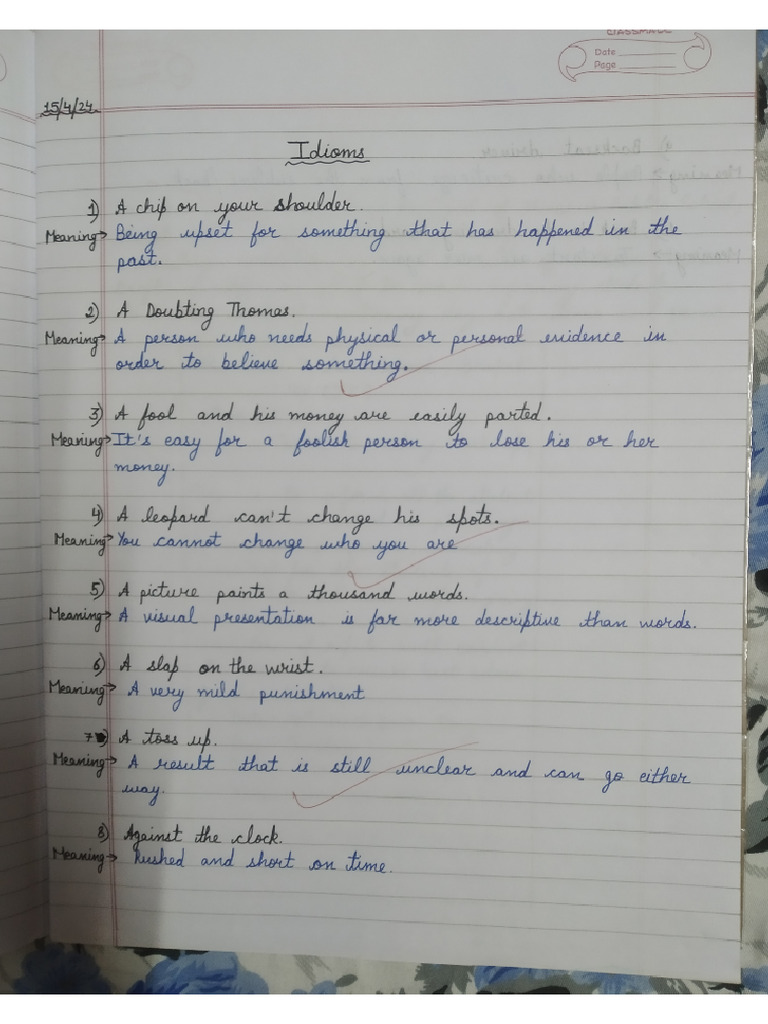 CLASSMATE
Date
Page
15/4/24
Idioms
1) A chip on your shoulder.
Meaning→ Being upset for something that has happened in the
past.
2) A Doubting Thomas.
Meaning→ A person who needs physical or personal evidence in
order to believe something.
3) A fool and his money are easily parted.
Meaning→ It's easy for a foolish person to lose his or her
money.
4) A leopard can't change his spots.
Meaning→ You cannot change who you are
5) A picture paints a thousand words.
Meaning→ A visual presentation is far more descriptive than words.
6) A slap on the wrist.
Meaning→ A very mild punishment
7) A toss up.
Meaning→ A result that is still unclear and can go either
way.
8) Against the clock.
Meaning→ Rushed and short on time.